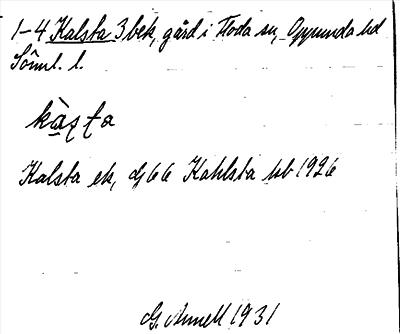 1-4 Kalsta 3 bek, gård i Floda sn, Oppunda hd
Söml. l.
kàsta
Kalsta ek, dj 66 Kahlsta hb 1926
G. Annell 1931